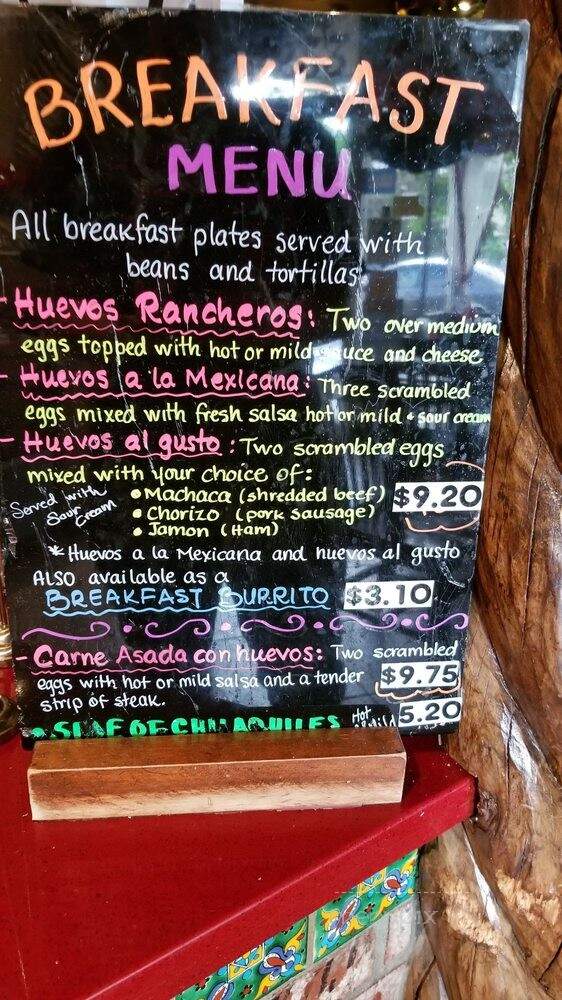 BREAKFAST
MENU
All breakfast plates served with
beans and tortillas.
- Huevos Rancheros: Two over medium
eggs topped with hot or mild sauce and cheese
- Huevos a la Mexicana: Three scrambled
eggs mixed with fresh salsa hot or mild & sour cream
- Huevos al gusto: Two scrambled eggs
mixed with your choice of:
Served with
Sour Cream
• Machaca (shredded beef)
• Chorizo (pork sausage)
• Jamon (Ham)
$9.20
* Huevos a la Mexicana and huevos al gusto
ALSO available as a
BREAKFAST BURRITO $3.10
- Carne Asada con huevos: Two scrambled
eggs with hot or mild salsa and a tender
strip of steak.
$9.75
• SIDE OF CHILAQUILES Hot
or Mild 5.20